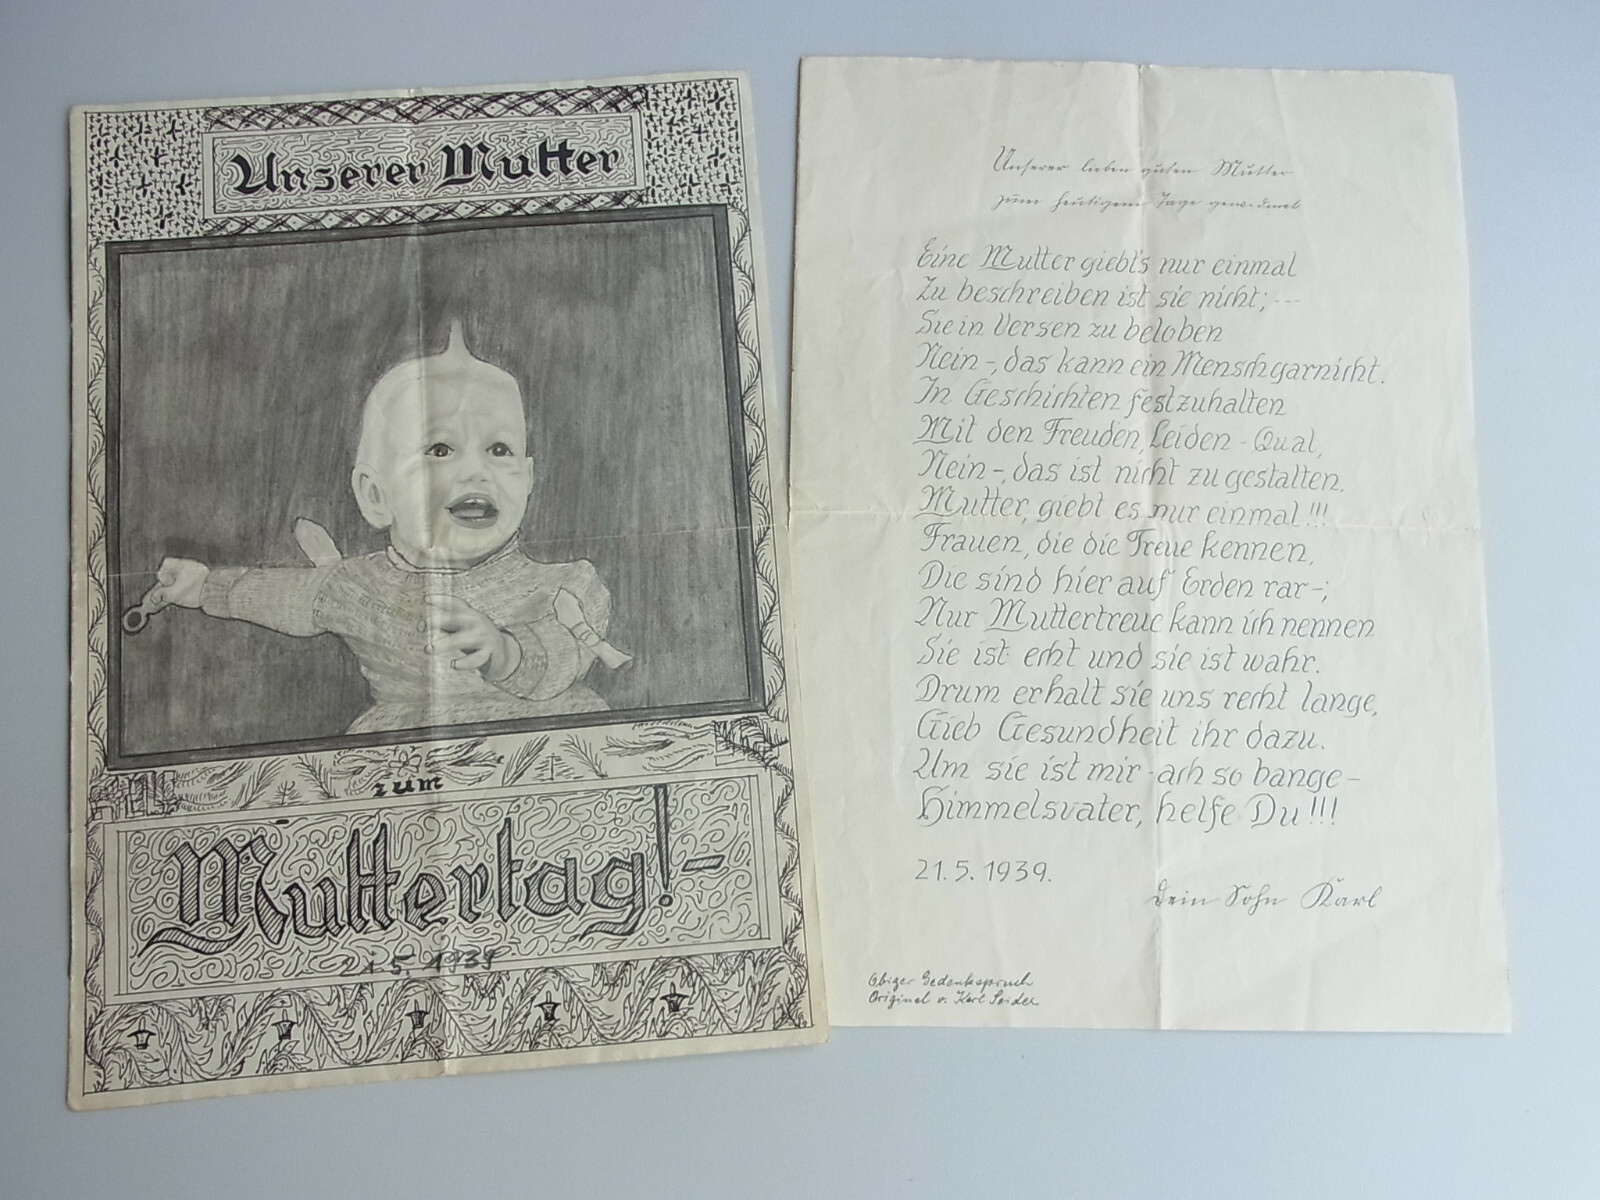 Unserer Mutter
zum
Muttertag!-
21.5.1939
Unserer lieben guten Mutter
zum heutigen Tage gewidmet
Eine Mutter giebt's nur einmal
Zu beschreiben ist sie nicht; ---
Sie in Versen zu beloben
Nein -, das kann ein Mensch garnicht.
In Geschichten festzuhalten
Mit den Freuden, Leiden - Qual,
Nein -, das ist nicht zu gestalten.
Mutter, giebt es nur einmal!!!
Frauen, die die Treue kennen,
Die sind hier auf Erden rar -;
Nur Muttertreue kann ich nennen
Sie ist echt und sie ist wahr.
Drum erhalt sie uns recht lange,
Gieb Gesundheit ihr dazu.
Um sie ist mir - ach so bange -
Himmelsvater, helfe Du!!!
21.5.1939.
Dein Sohn Karl
Obiger Gedenkspruch
Original v. Karl Seider